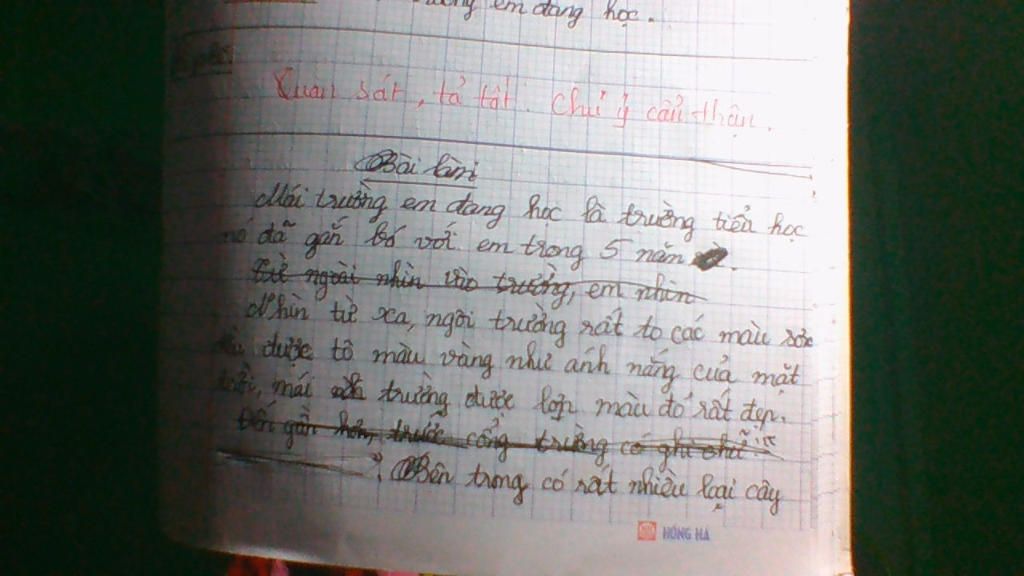 em đang học.
Quan sát, tả tốt. Chú ý cẩn thận.
Bài làm
Mái trường em đang học là trường tiểu học
nó đã gắn bó với em trong 5 năm
Từ ngoài nhìn vào trường, em nhìn
Nhìn từ xa, ngôi trường rất to các màu sơn
được tô màu vàng như ánh nắng của mặt
trời, mái trường được lợp màu đỏ rất đẹp.
Đến gần hơn, trước cổng trường có ghi chữ
Bên trong có rất nhiều loại cây
HỒNG HÀ